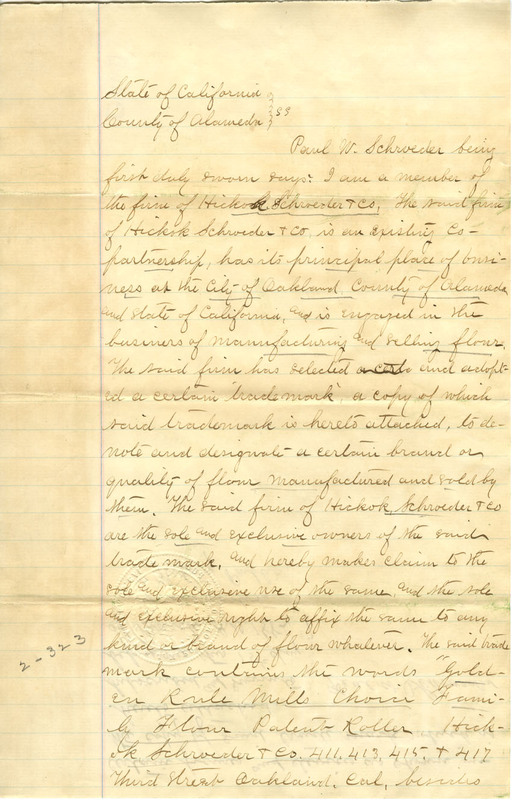 State of California
County of Alameda } ss
Paul W. Schroeder being
first duly sworn says: I am a member of
the firm of Hickok Schroeder & Co. The said firm
of Hickok Schroeder & Co, is an existing Co-
partnership, has its principal place of busi-
ness at the City of Oakland County of Alameda
and State of California, and is engaged in the
business of manufacturing and selling flour.
The said firm has selected and adopt-
ed a certain trademark, a copy of which
said trademark is hereto attached, to de-
note and designate a certain brand or
quality of flour manufactured and sold by
them. The said firm of Hickok, Schroeder & Co
are the sole and exclusive owners of the said
trade mark, and hereby makes claim to the
sole and exclusive use of the same, and the sole
and exclusive right to affix the same to any
kind or brand of flour whatever. The said trade
mark contains the words "Gold-
en Rule Mills Choice Fami-
ly Flour Patent Roller Hick-
ok Schroeder & Co. 411, 413, 415, & 417
Third Street Oakland, Cal, besides
2-323